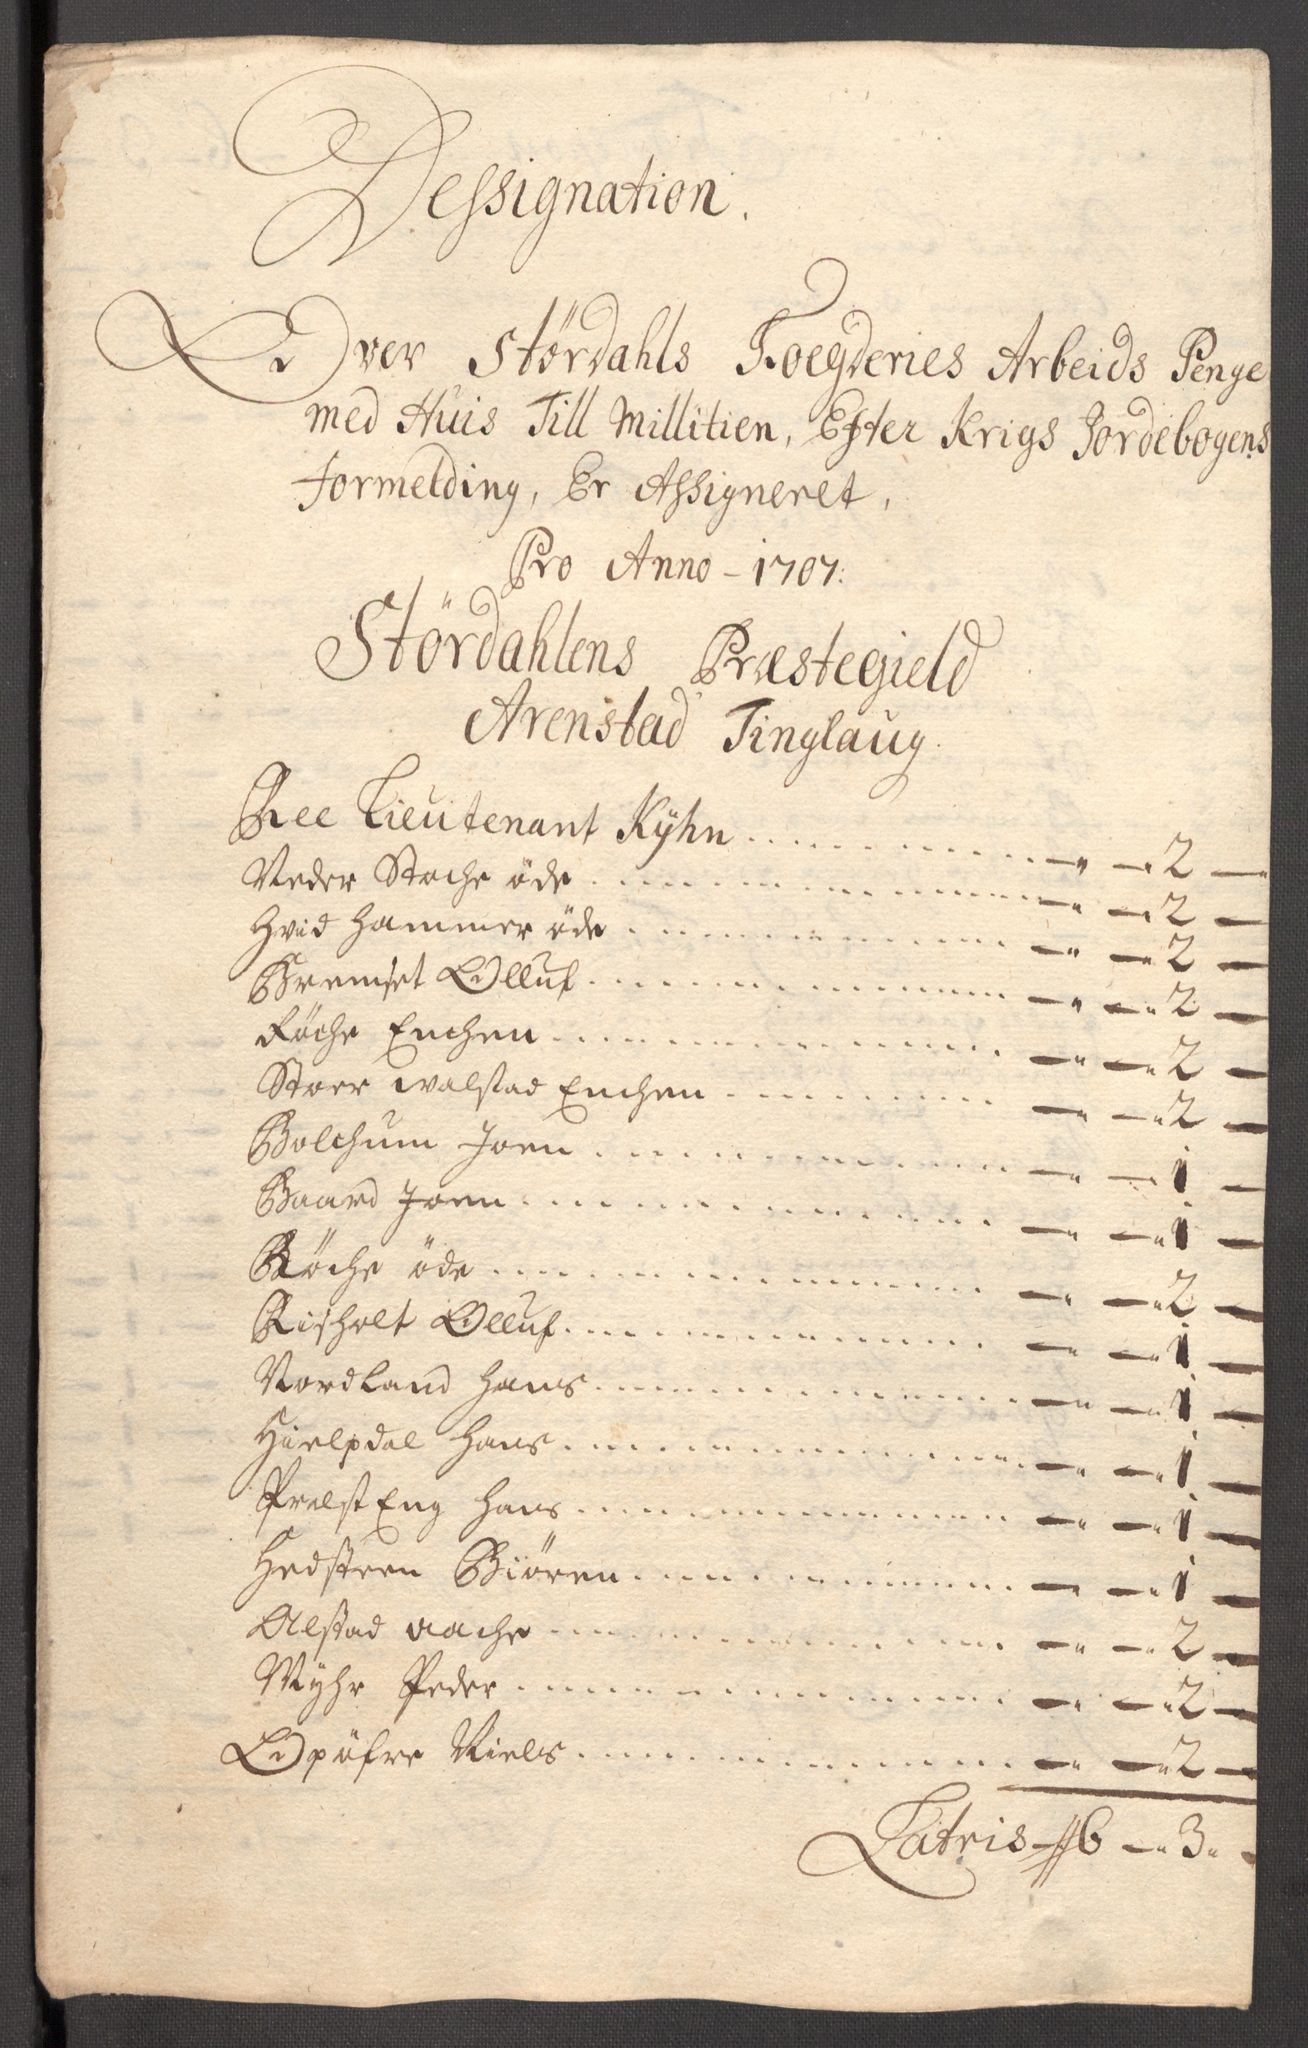 Dessignation.
Over Stördahls Foegderies Arbeids Penge
med Huis Till Millitien, Efter Krigs Jordebogens
Formelding, Er Assigneret,
Pro Anno - 1707:
Stördahlens Præstegield
Arenstad Tinglaug.
Ree Lieutenant Kÿhn - " - " 2 -
Neder Stoche öde - " - " 2 -
Hvid Hammer öde - " - " 2 -
Bremset Olluf - " - " 2 -
Röche Enchen - " - " 2 -
Stoer Walstad Enchen - " - " 2 -
Bolchum Joen - " - " 1 -
Baard Joen - " - " 1 -
Röche öde - " - " 2 -
Risholt Olluf - " - " 1 -
Nordland Hans - " - " 1 -
Hielpdal Hans - " - " 1 -
Prelst Eng Hans - " - " 1 -
Hedsteen Biören - " - " 1 -
Alstad Aache - " - " 2 -
Mÿhr Peder - " - " 2 -
Opöfre Niels - " - " 2 -
Latris - 6 - " 3 "